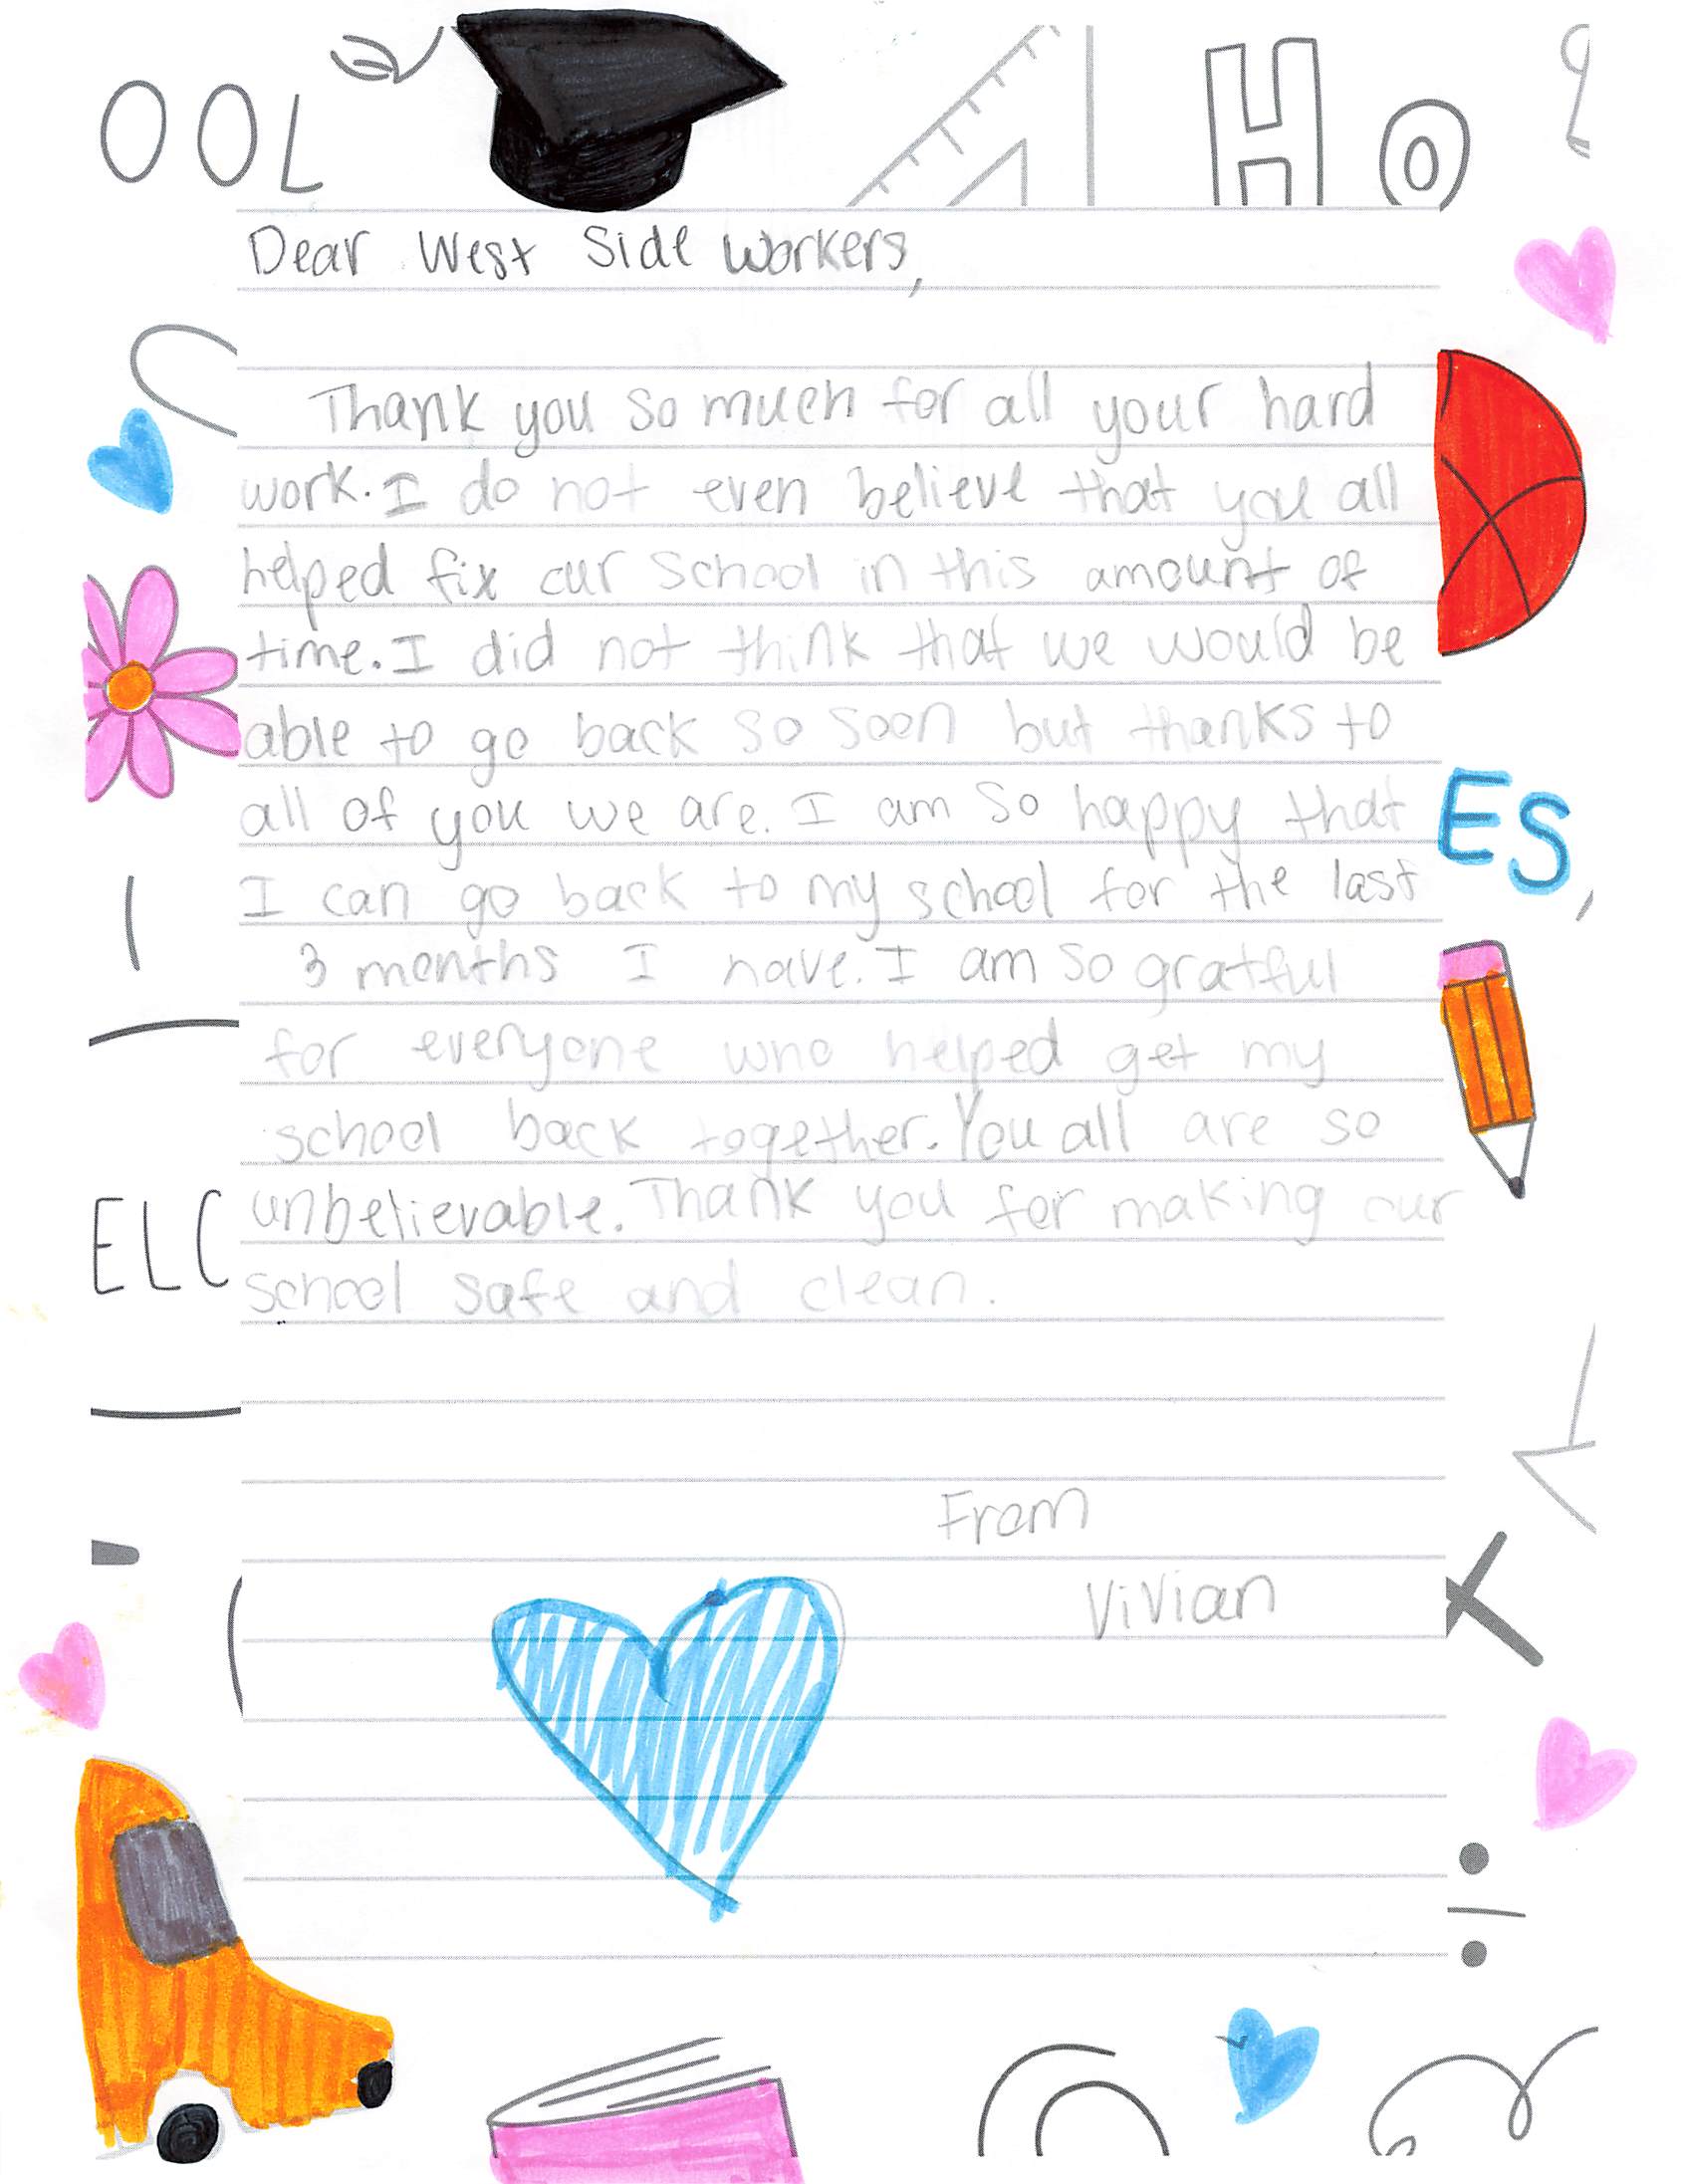 OOL
Ho
Dear West Side Workers,
Thank you so much for all your hard
work. I do not even believe that you all
helped fix our School in this amount of
time. I did not think that we would be
able to go back so soon but thanks to
all of you we are. I am so happy that
ES,
I can go back to my school for the last
3 months I have. I am so gratful
for everyone who helped get my
school back together. You all are so
unbelievable. Thank you for making our
ELC
school safe and clean.
From
Vivian